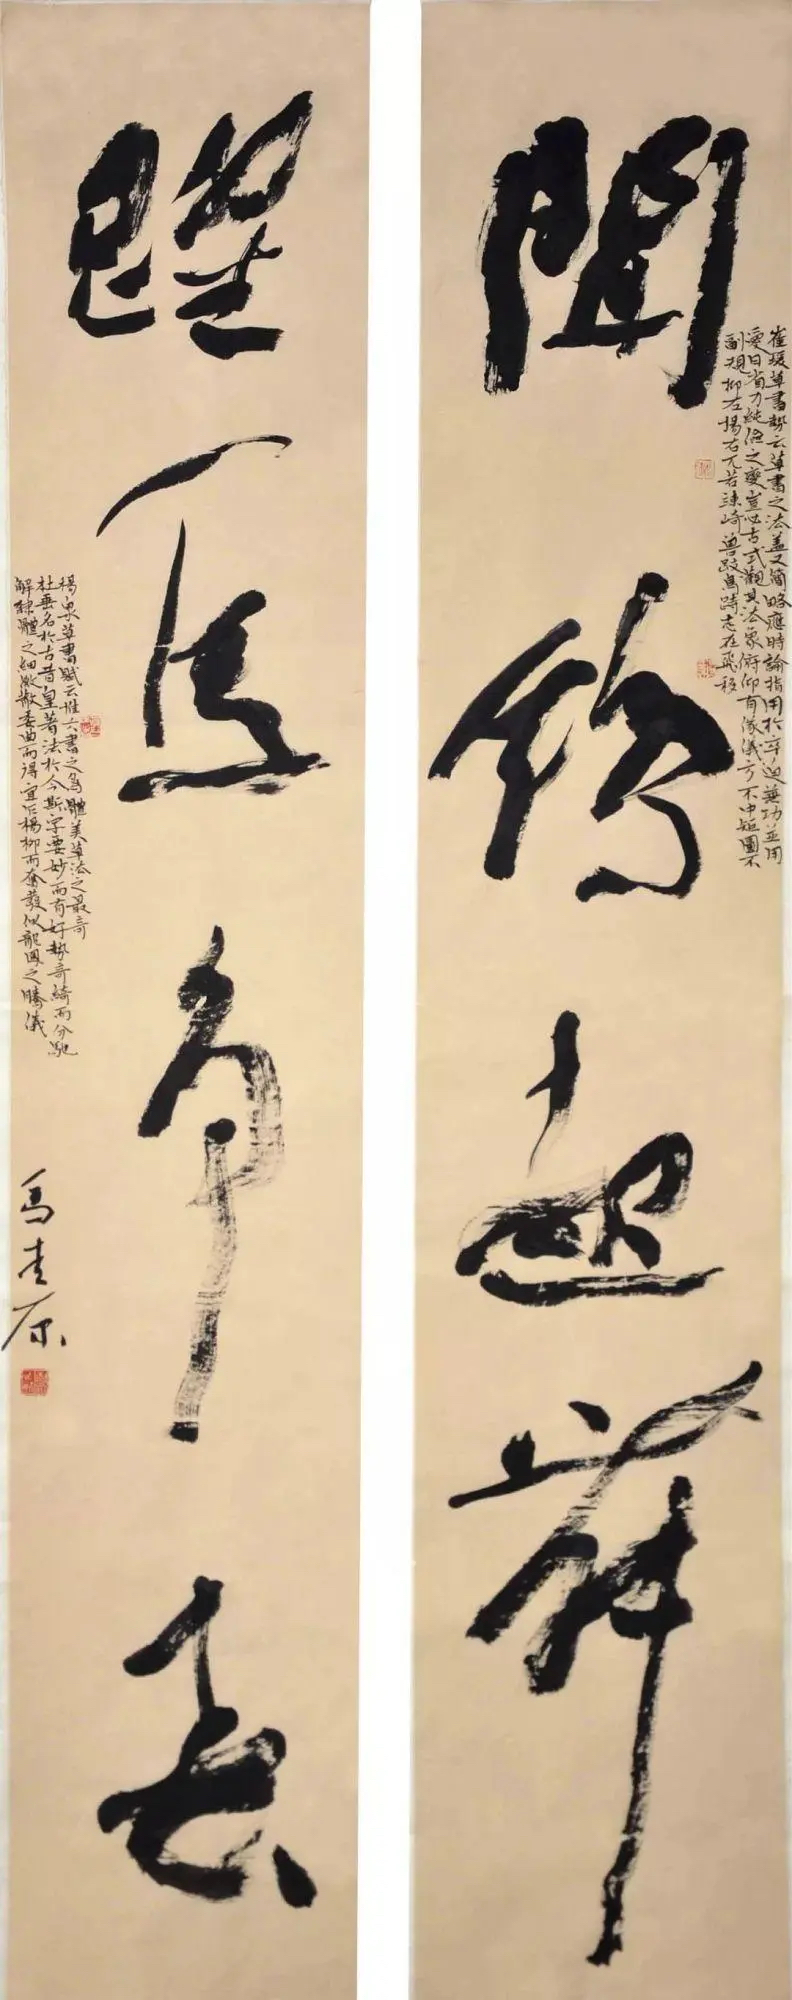 聞鷄起舞
崔瑗草書勢云草書之法蓋又簡略應時論指用於卒迫兼功並用
愛日省力純儉之變豈必古式觀其法象俯仰有儀方不中矩圓不
副規抑左揚右兀若竦崎獸跂鳥跱志在飛移
躍馬争春
楊泉草書賦云惟六書之為體美草法之最奇
杜垂名於古昔皇著法於今斯字要妙而有好勢奇綺而分馳
解隸體之細微散委曲而得宜乍楊柳而奮發似龍鳳之騰儀